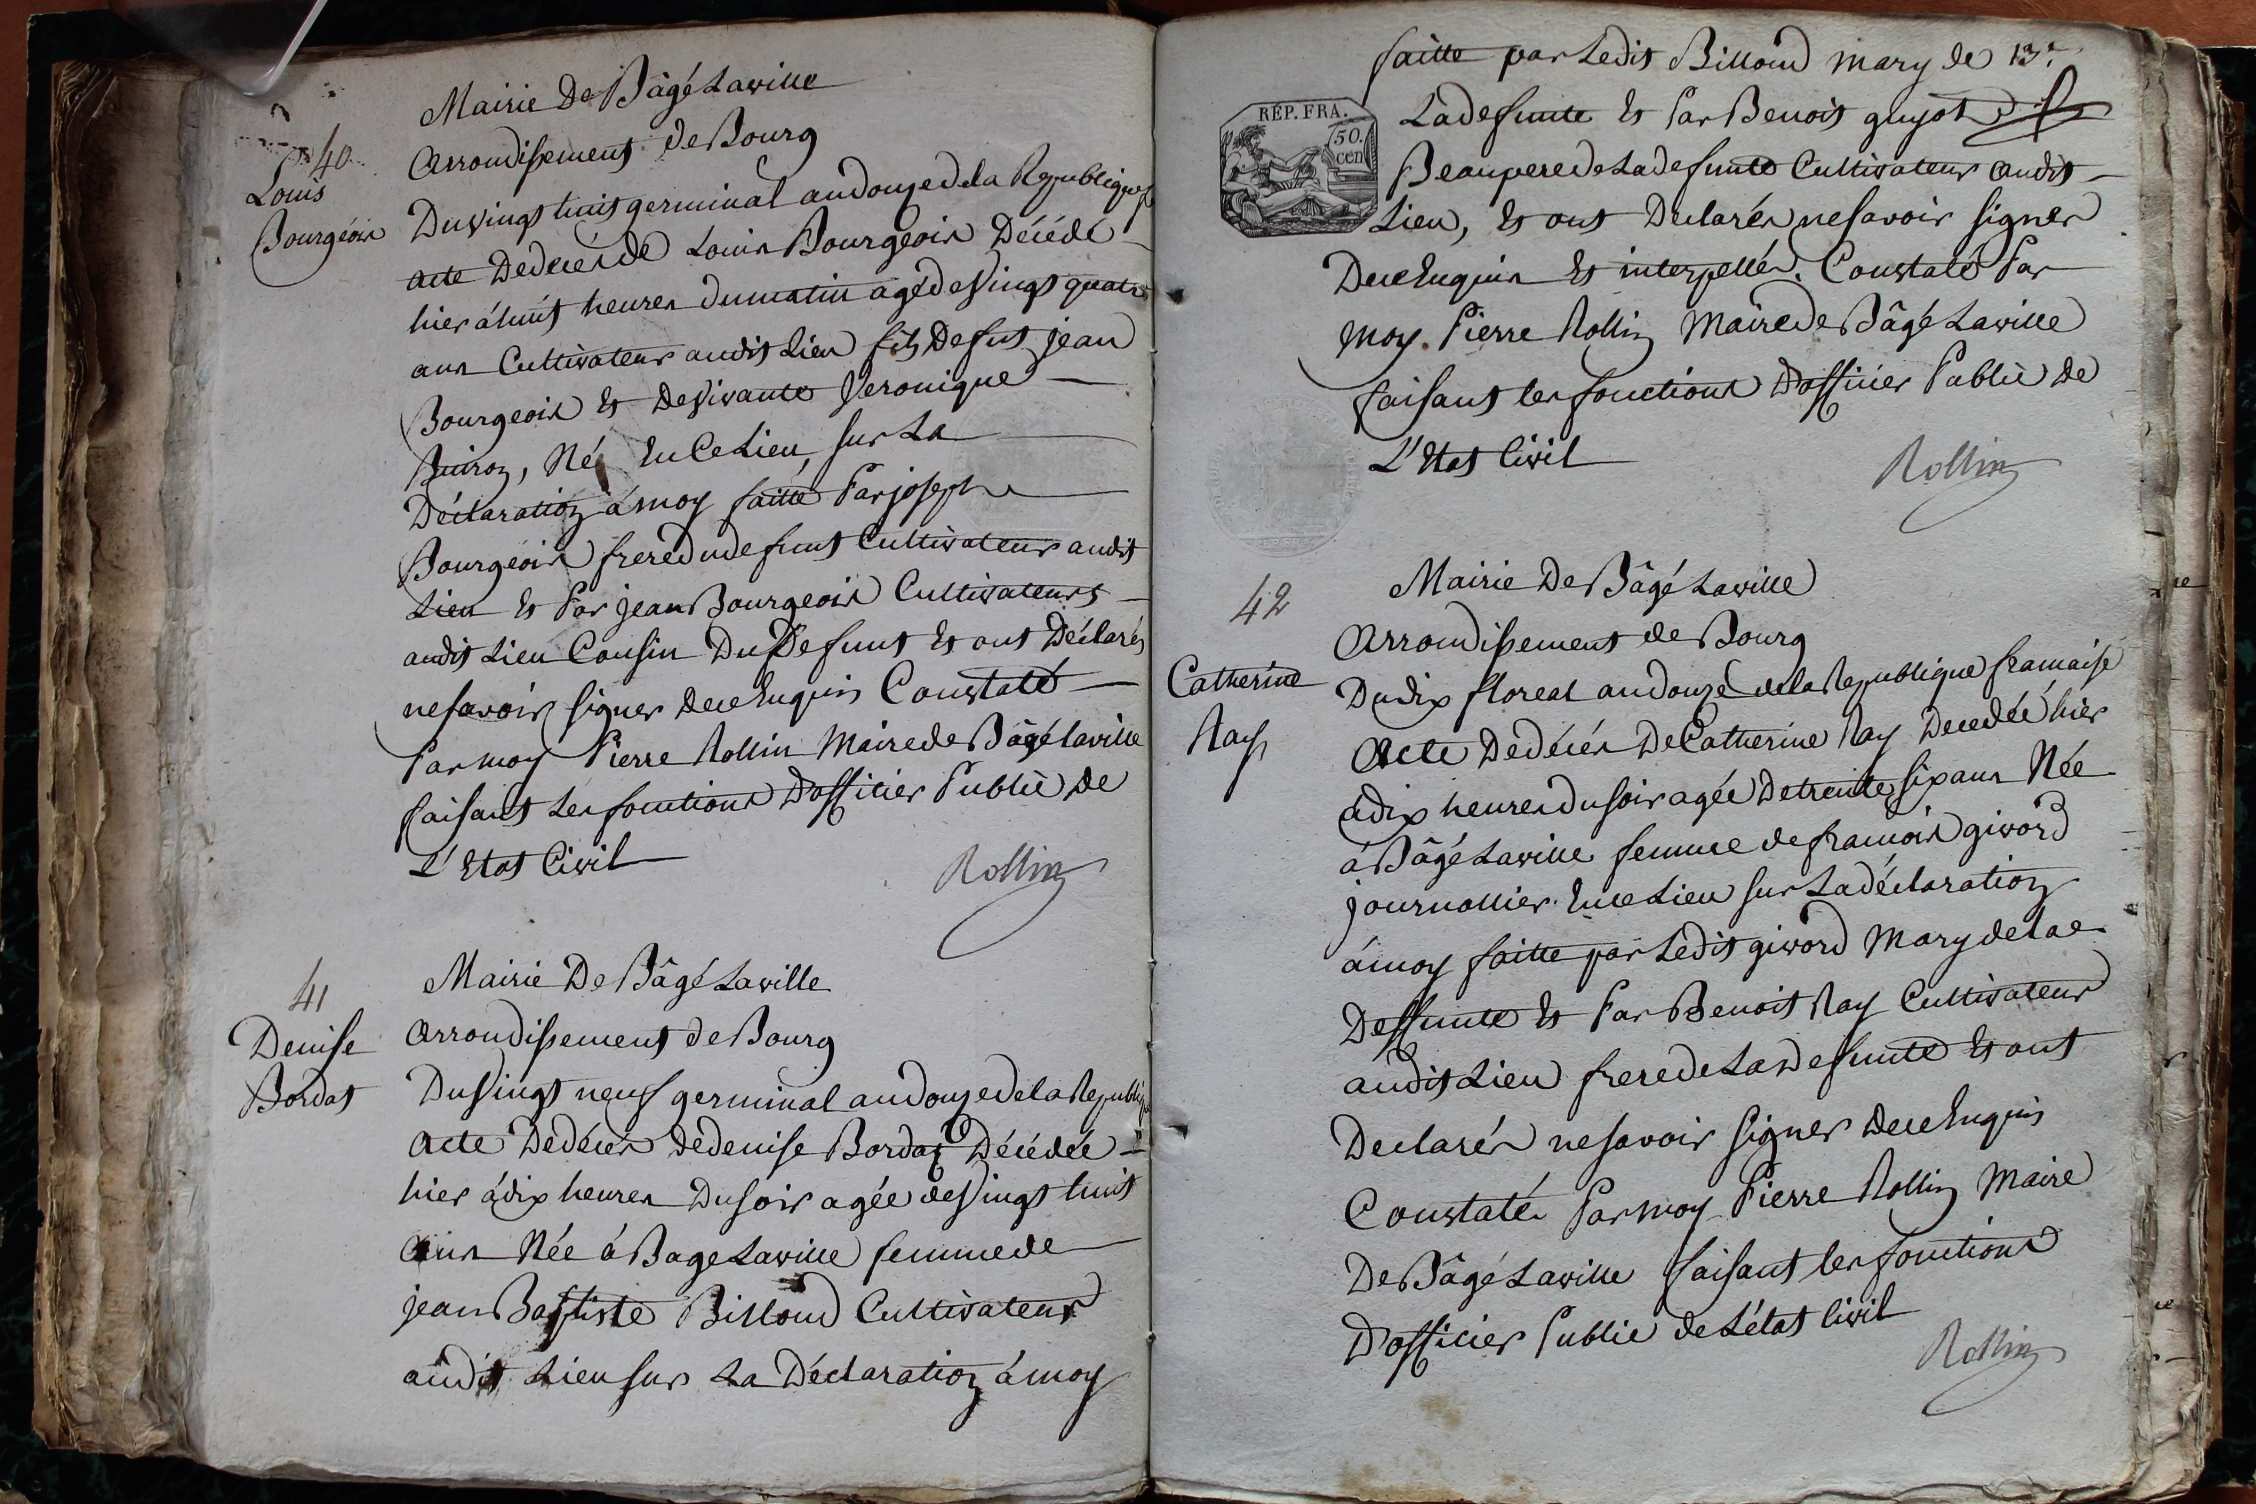 40
Louis
Bourgeois
Mairie De Bâgé Laville
Arrondissement de Bourg
Du vingt huit germinal an douze de la Republique
acte De decés de Louis Bourgeois Décédé
hier á huit heures du matin agé de vingt quatre
ans Cultivateur audit Lieu fils De fut jean
Bourgeois et De vivante Veronique
Buiron, Né En Ce Lieu, sur La
Déclaration á moy faitte Par joseph
Bourgeois frere du defunt Cultivateur audit
Lieu et Par jean Bourgeois Cultivateurs
audit Lieu Cousin Du Defunt et ont Déclarés
ne savoir signer de ce Enquis Constaté
Par moy Pierre Rollin Maire de Bâgé laville
faisant Les fonctions D'officier Public De
L'Etat Civil
Rollin
41
Denise
Bordat
Mairie De Bâgé Laville
Arrondissement de Bourg
Du vingt neuf germinal an douze de la Republique
Acte De décés de denise Bordat Décédée
hier á dix heures Du soir agée de vingt huit
Ans Née á Bage Laville femme de
jean Baptiste Billoud Cultivateur
audit Lieu sur La Déclaration á moy
faitte par Ledit Billoud mary de 13.e
RÉP. FRA.
50.
cen
La defunte et Par Benoit guyot
Beaupere de La defunte Cultivateur audit
Lieu, et ont Declarés ne savoir signer
De ce Enquis et interpellés. Constaté Par
moy. Pierre Rollin Maire de Bâgé Laville
faisant les fonctions D'officier Public De
L'Etat Civil
Rollin
42
Catherine
Ray
Mairie De Bâgé Laville
Arrondissement de Bourg
Du dix floreal an douze de la Republique francaise
Acte De décés De Catherine Ray Decedée hier
á dix heures du soir agée De trente six ans Née
á Bâgé Laville femme de francois givord
journallier. En ce Lieu sur La déclaration
á moy faitte par Ledit givord Mary de la
Deffunte et Par Benoit Ray Cultivateur
audit Lieu frere de La Defunte et ont
Declarés ne savoir signer De ce Enquis
Constaté Par moy Pierre Rollin Maire
De Bâgé Laville faisant les fonctions
D'officier Public de L'état Civil
Rollin